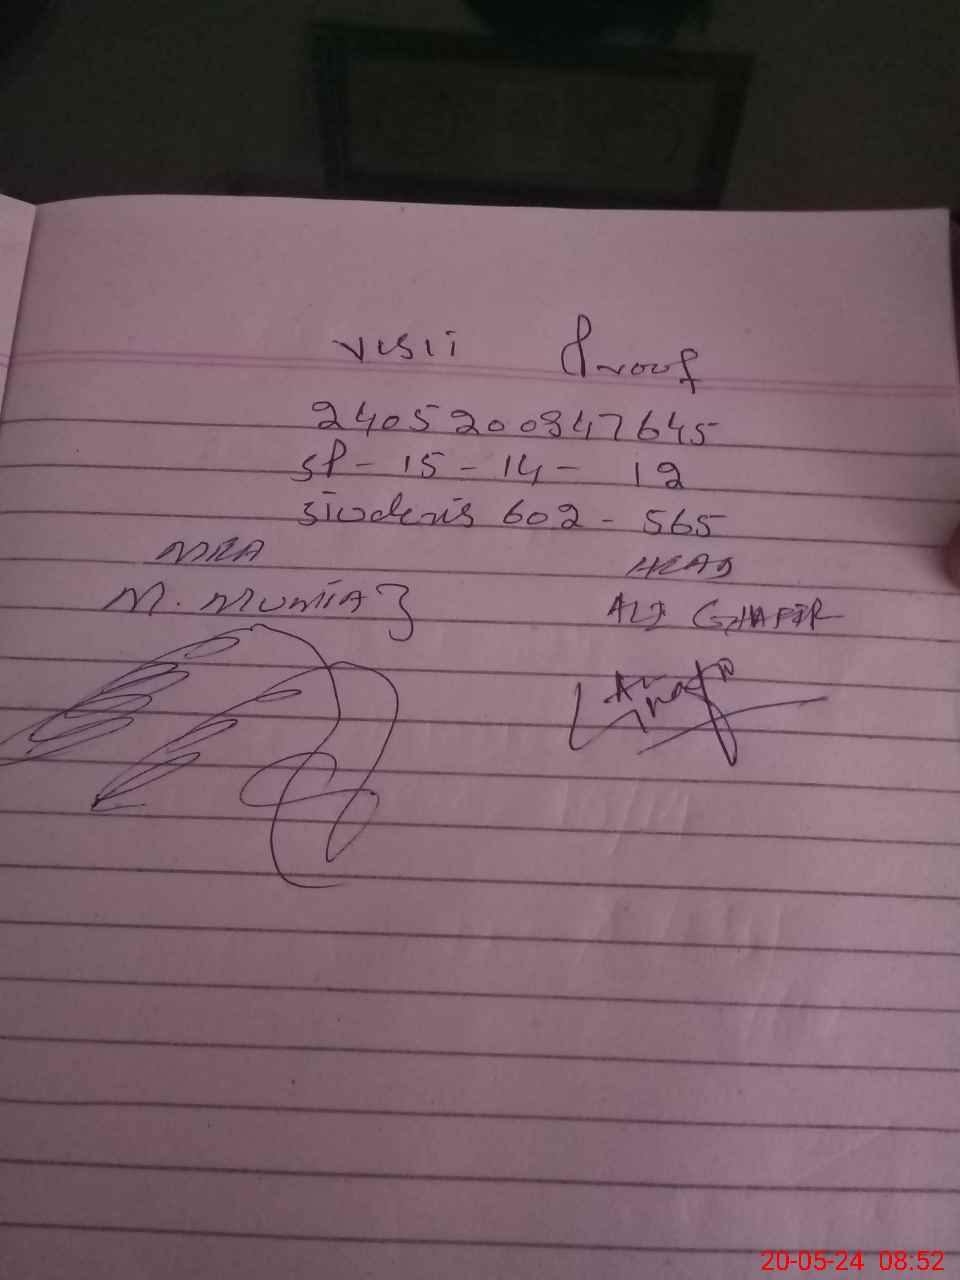 Visit Proof
2405200847645
SP - 15 - 14 - 12
Students 602 - 565
MEA HEAD
M. MUMTAZ ALI GHAFIR
20-05-24 08:52